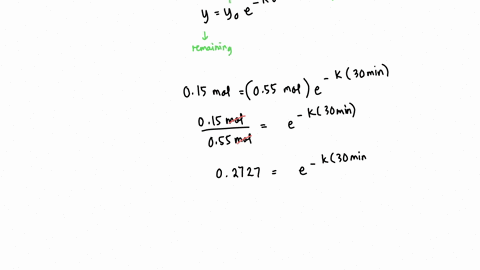 y = y₀ e^-k
↓
remaining
0.15 mol = (0.55 mol) e^-k(30min)
0.15 mol / 0.55 mol = e^-k(30min)
0.2727 = e^-k(30min